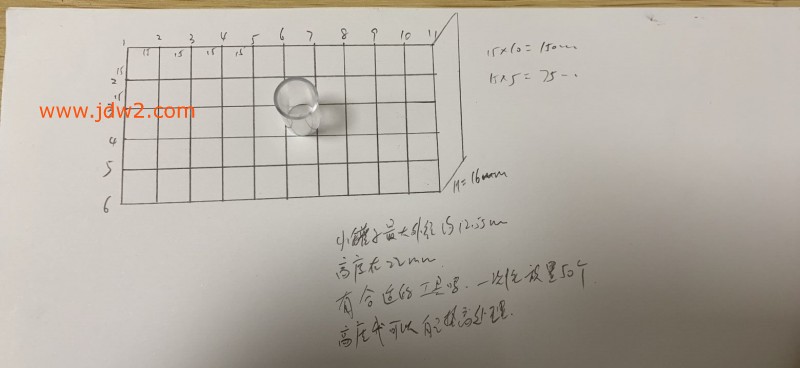 1 2 3 4 5 6 7 8 9 10 11
15 15 15 15
15
2
15
www.jdw2.com
4
5
6
15×10=150mm
15×5=75
H=16mm
小罐子最大外径约12.55mm
高度在22mm
有合适的工具吗.一次性放置50个
高度我可以自己垫高处理.